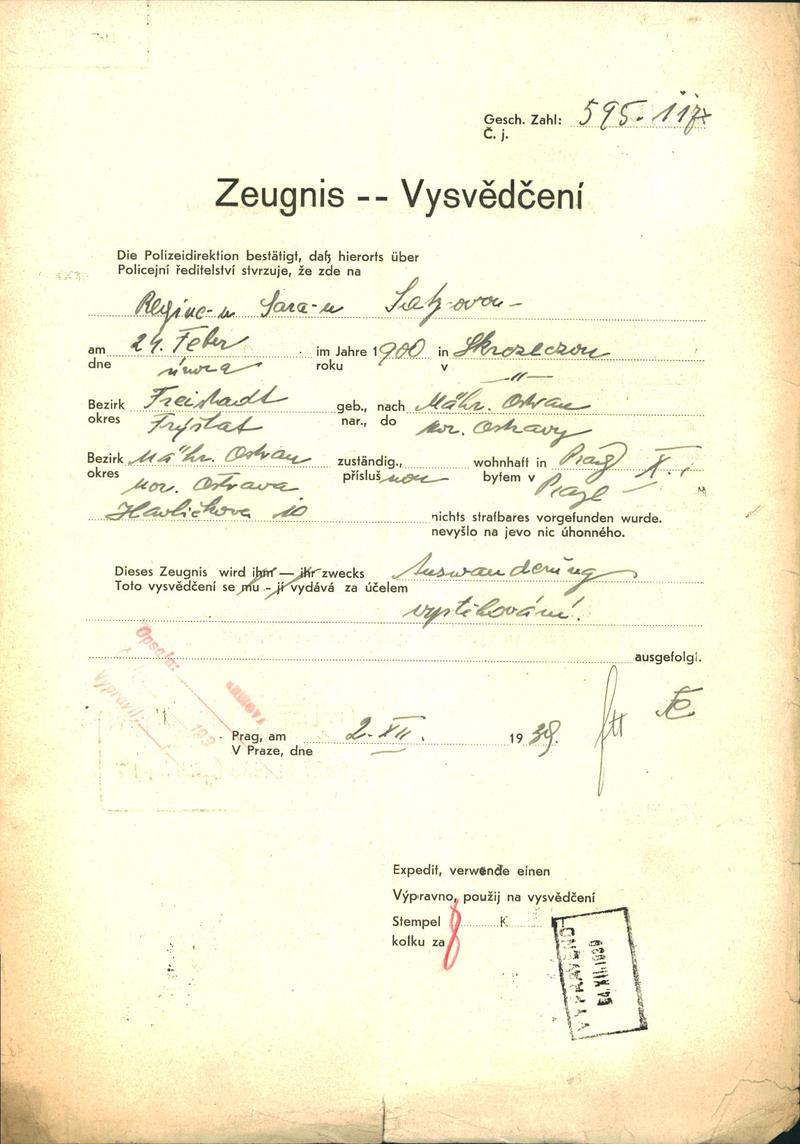 Gesch. Zahl: 595.
Č. j.
Zeugnis -- Vysvědčení
Die Polizeidirektion bestätigt, daß hierorts über
Policejní ředitelství stvrzuje, že zde na
Regine-u Sara-u
am 24. Feber im Jahre 1900 in Skrzeczon
dne února roku v -"-
Bezirk Freistadt geb., nach Mähr. Ostrau
okres Fryštat nar., do Mor. Ostravy
Bezirk Mähr. Ostrau zuständig., wohnhaft in Prag X.,
okres Mor. Ostrava příslušnou bytem v Praze
Havlíčkova 10 nichts strafbares vorgefunden wurde.
nevyšlo na jevo nic úhonného.
Dieses Zeugnis wird ihm — ihr zwecks Auswanderung
Toto vysvědčení se mu - jí vydává za účelem
vystěhování.
ausgefolgt.
Opsala:
Vypravil:
Prag, am 2. XII. 1939.
V Praze, dne
Expedit, verwende einen
Výpravno, použij na vysvědčení
Stempel K
kolku za 8
VYPRAVENO
XII.1939